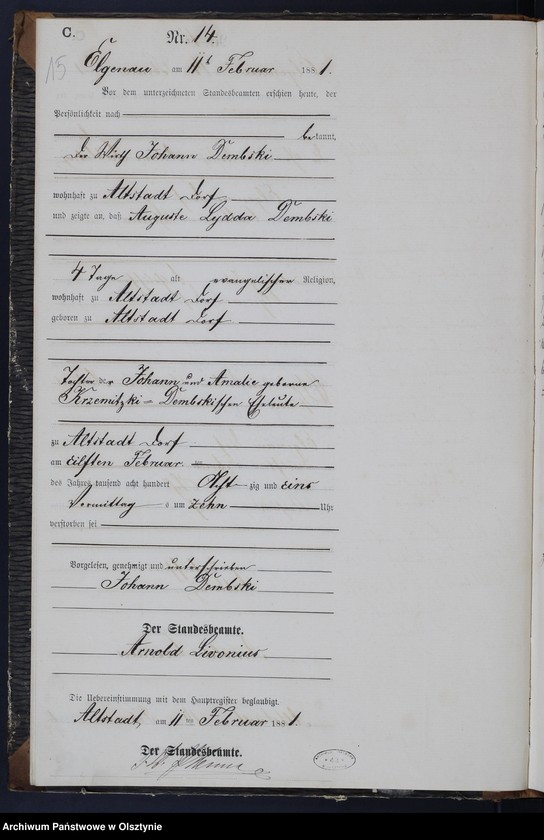 C.
Nr. 14.
15
Elgenau am 11t Februar 1881.
Vor dem unterzeichneten Standesbeamten erschien heute, der
Persönlichkeit nach
bekannt,
der Wirth Johann Dembski
wohnhaft zu Altstadt Dorf
und zeigte an, daß Auguste Lydda Dembski
4 Tage alt evangelischer Religion,
wohnhaft zu Altstadt Dorf
geboren zu Altstadt Dorf
Tochter der Johann und Amalie geborene
Krzemitzki - Dembskischen Eheleute
zu Altstadt Dorf
am eilften Februar
des Jahres tausend acht hundert Achtzig und eins
Vormittag s um zehn Uhr
verstorben sei
Vorgelesen, genehmigt und unterschrieben
Johann Dembski
Der Standesbeamte.
Arnold Livonius
Die Uebereinstimmung mit dem Hauptregister beglaubigt.
Altstadt, am 11 ten Februar 1881.
Der Standesbeamte.
Archiwum Państwowe w Olsztynie